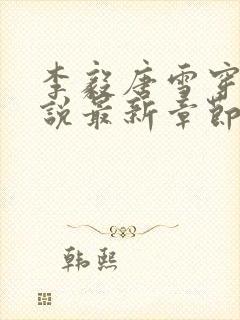 李毅唐雪穿
說最新章節
韩熙